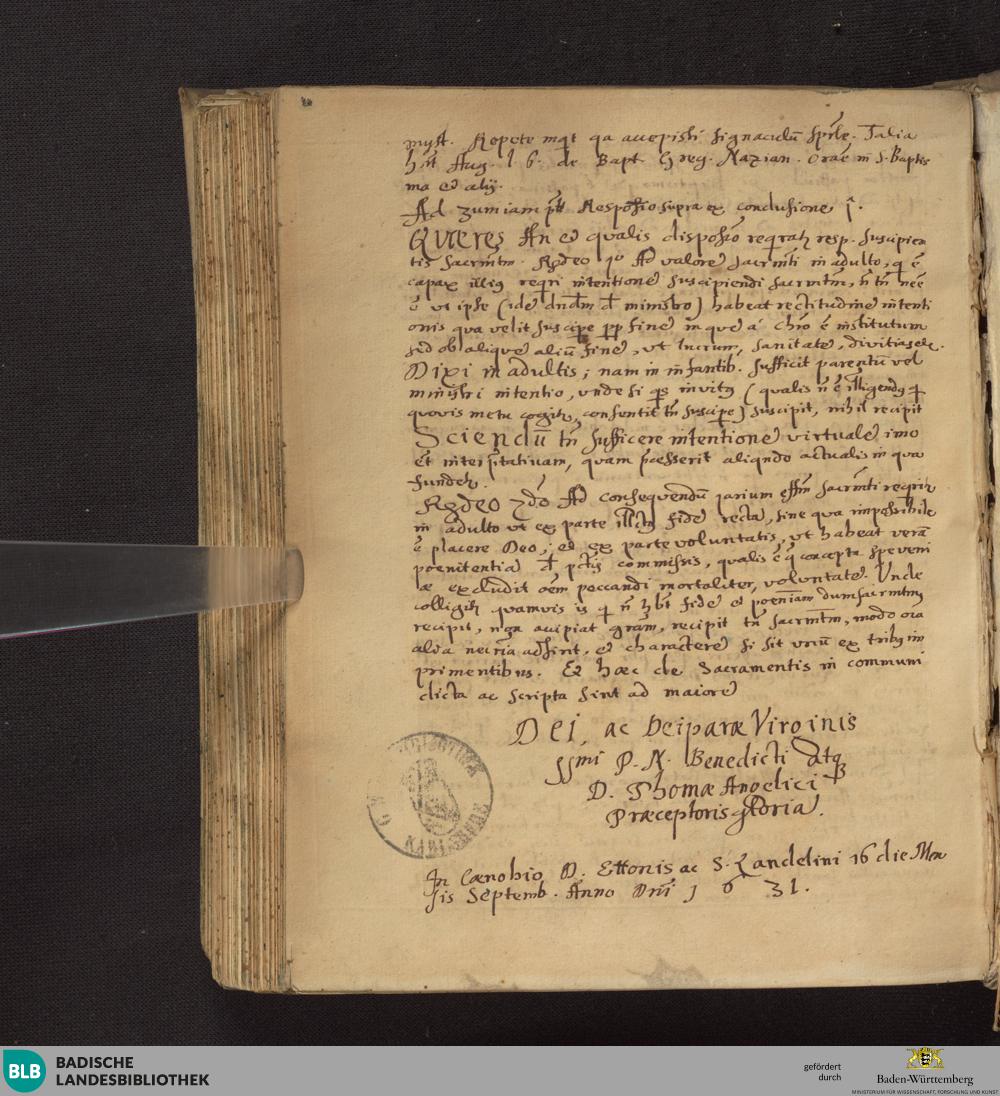 myst. Repete inqt qa accepisti signaculū sp̄rle. Talia
hñt Aug. l 6. de Bapt Greg. Nazian. Oraē in S. Baptis
ma et alij.
Ad 3um iam ptt Respōsio supra ex conclusione 1.
Quæres An et qualis disposio reqratr resp. suscipien
tis sacrmtm. Rsdeo 1o Ad valorē sacrmti in adulto, q ē
capax illius reqri intentionē suscipiendi sacrmtm, ñ tñ nec̄ē
ē ut ipse (idē dndm d ministro) habeat rectitudinē intenti
onis qua velit suscipe pp finē in quē a Chro ē institutum
sed ob aliquē aliū finē, ut lucrum, sanitatē, divitias etc.
Dixi in adultis; nam in infantib. sufficit parentū vel
ministri intentio, unde si qs invitus (qualis ñ ē illigendus q
quovis metu cogitr, consentit tñ suscipe) suscipit, nihil recipit
Sciendū tñ sufficere intentionē virtualē imo
et interptativam, quam præsserit aliqndo actualis in qua
fundetr.
Rsdeo 2do Ad consequendū parium effm sacrmti reqritr
in adulto ut ex parte illctus fidē rectā, sine qua impossibile
ē placere Deo; et ex parte voluntatis, ut habeat verā
poenitentiā d pctis commissis, qualis ē q concepta spe veni
æ excludit oem peccandi mortaliter, voluntatē. Unde
colligitr quamvis is q ñ hbt fidē et poeniam dum sacrmtum
recipit, non accipiat gram, recipit tñ sacrmtm, modo oia
alia necria adsint, et characterē si sit unū ex tribus im
primentibus. Et hæc de Sacramentis in communi
dicta ac scripta sint ad maiorē
Dei, ac Deiparæ Virginis
SSmi P. N. Benedicti Atq
D. Thomæ Angelici
Præceptoris gloria.
In Cænobio D. Ettonis ac S. Landelini 16 die Men
sis Septemb. Anno Dni 1 6 31.
BLB
BADISCHE
LANDESBIBLIOTHEK
gefördert
durch
Baden-Württemberg
MINISTERIUM FÜR WISSENSCHAFT, FORSCHUNG UND KUNST